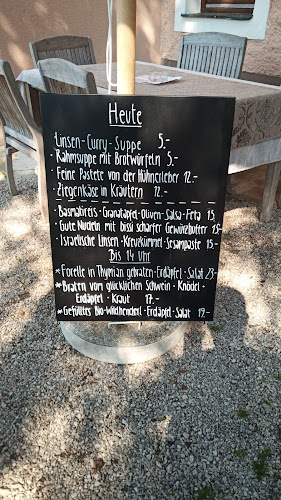 Heute
Linsen-Curry-Suppe 5.-
· Rahmsuppe mit Brotwürfeln 5.-
· Feine Pastete von der Hühnerleber 12.-
· Ziegenkäse in Kräutern 12.-
· Basmatireis · Granatäpfel · Oliven · Salsa · Feta 15
· Gute Nudeln mit bissi scharfer Gewürzbutter 15
· Israelische Linsen · Kreuzkümmel · Sesampaste 15
Bis 14 Uhr
* Forelle in Thymian gebraten · Erdäpfel · Salat 23.-
* Braten vom glücklichen Schwein · Knödel ·
Erdäpfel · Kraut 17.-
* Gefülltes Bio-Wildhenderl · Erdäpfel · Salat 19.-